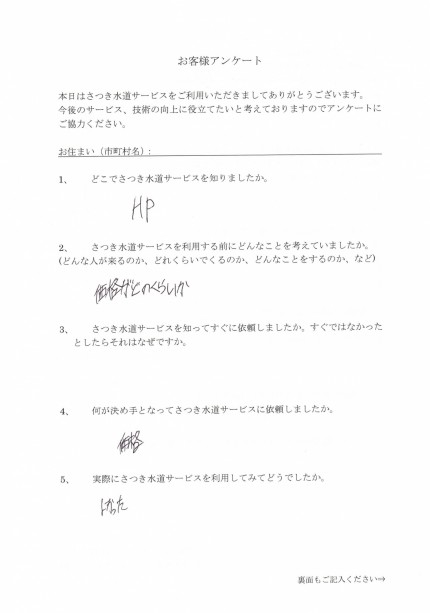 お客様アンケート
本日はさつき水道サービスをご利用いただきましてありがとうございます。
今後のサービス、技術の向上に役立てたいと考えておりますのでアンケートに
ご協力ください。
お住まい（市町村名）:
1、 どこでさつき水道サービスを知りましたか。
HP
2、 さつき水道サービスを利用する前にどんなことを考えていましたか。
(どんな人が来るのか、どれくらいでくるのか、どんなことをするのか、など)
価格がどのくらいか
3、 さつき水道サービスを知ってすぐに依頼しましたか。すぐではなかった
としたらそれはなぜですか。
4、 何が決め手となってさつき水道サービスに依頼しましたか。
価格
5、 実際にさつき水道サービスを利用してみてどうでしたか。
よかった
裏面もご記入ください⇒